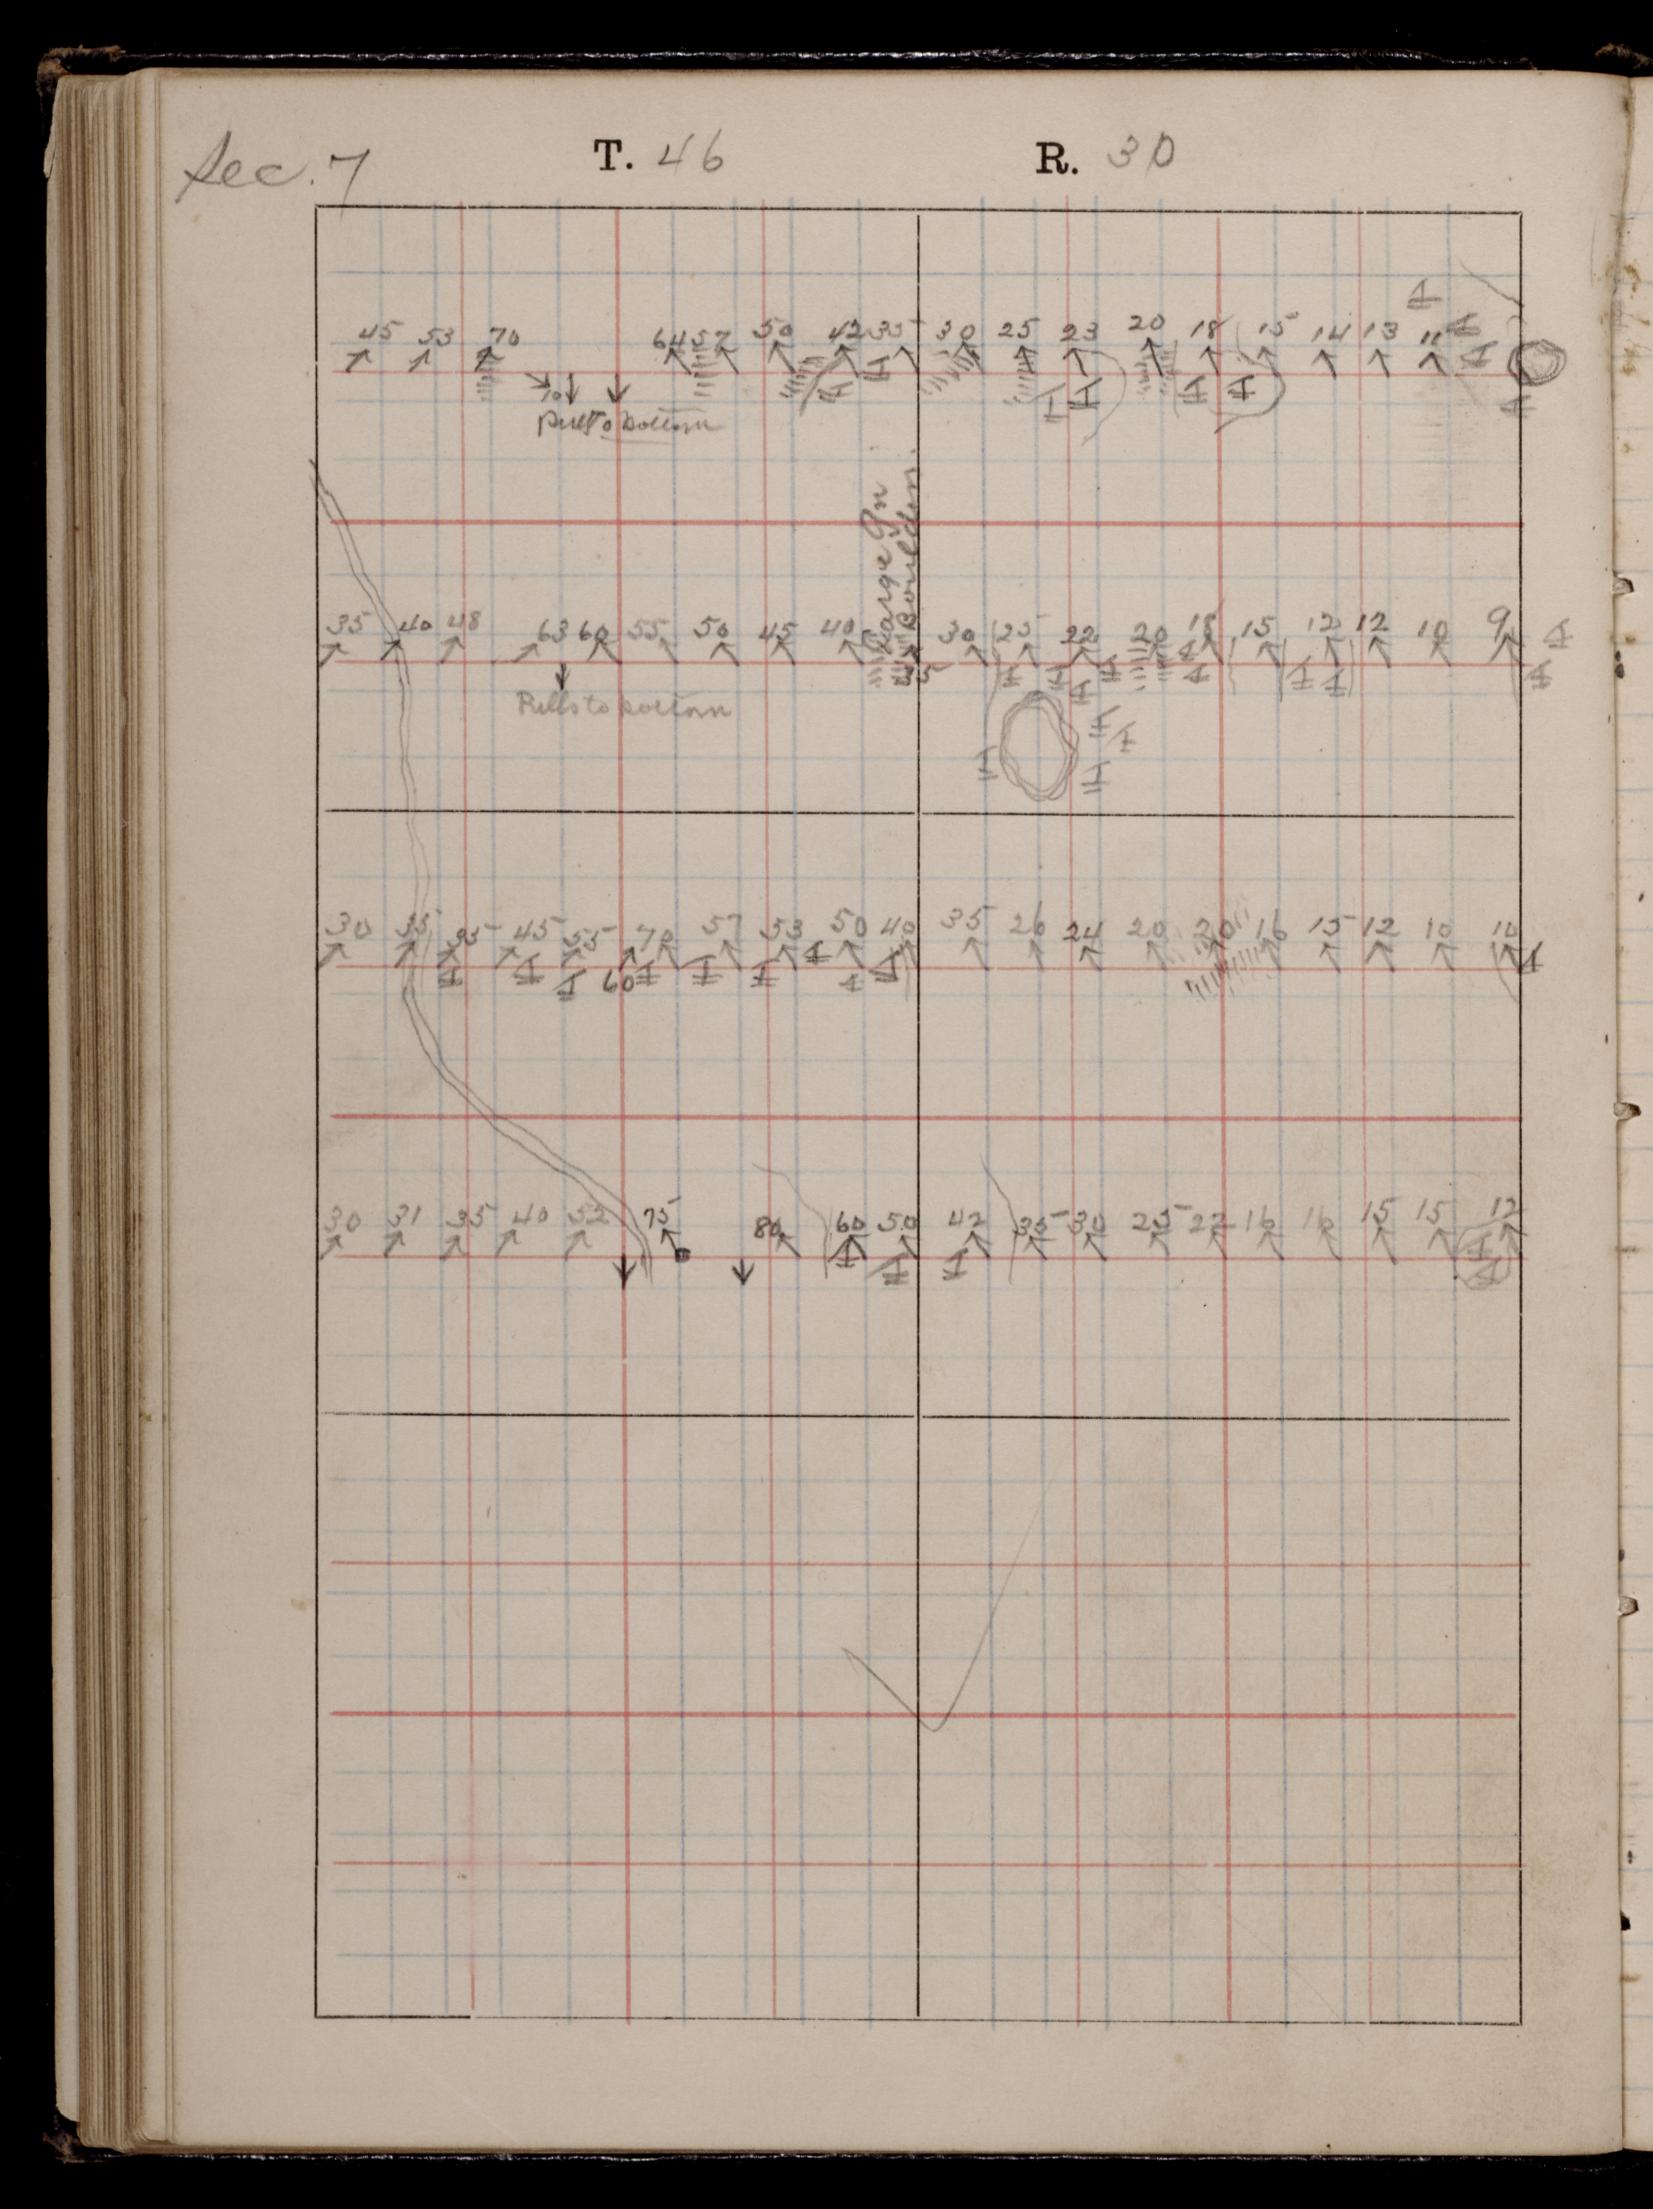 Sec. 7 T. 46 R. 30
45 53 70 64 57 50 42 35 30 25 23 20 18 15 14 13 11
70
Pulls to bottom
Large Gn
Boulders.
35 40 48 63 60 55 50 45 40 30 25 22 20 18 15 12 12 10 9
35
Pulls to bottom
30 35 35 45 55 70 57 53 50 40 35 26 24 20 20 16 15 12 10 10
60
30 31 35 40 52 75 80 60 50 42 35 30 25 22 16 16 15 15 12